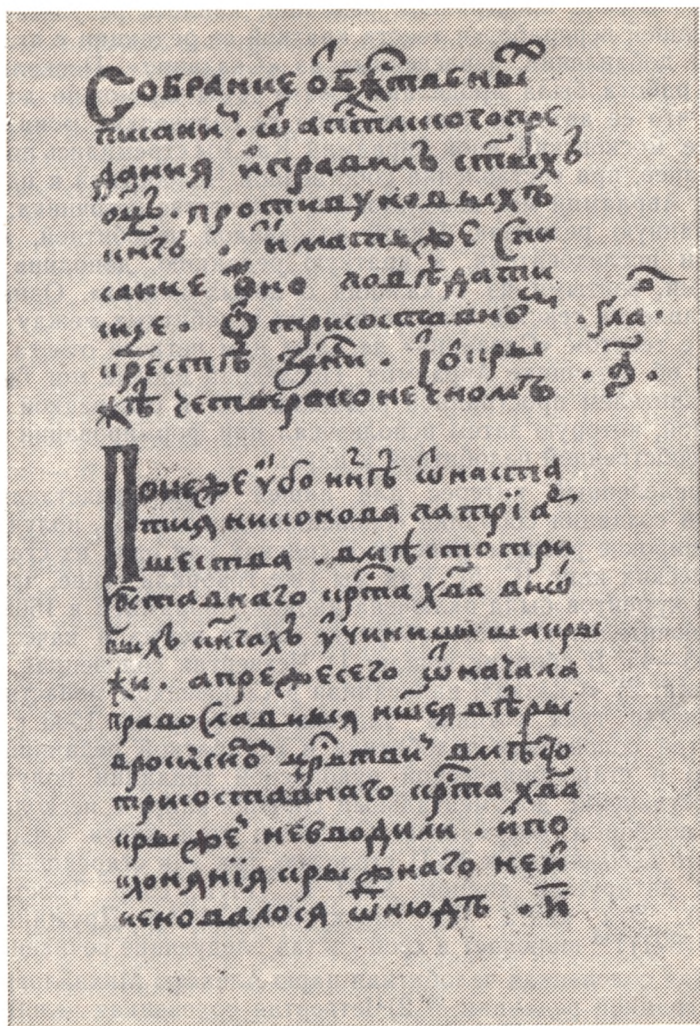 Собрание ѿ бжⷭ҇тавныⷯ
писаниⷯ . ѿ апⷭ҇тлскотопре
дания и҆ правилъ ст҃ыхъ
ѻц҃ъ . противу новыхъ
кнгъ . и҆мать же спи
сание ѻно поведати
сице . Ѻ трисоставноⷨ
крестѣ гдⷭ҇ни . І ѻ кры
жѣ четвераконечномъ
глаⷡ .
а҃ .
Понеже у҆бо ннѣ ѿ наста
тия никонова патрїаⷬ
шества . вмѣсто три
составнаго крⷭ҇та хв҃а внѡ
выхъ кнгахъ кры
жи . апрежесего ѿ начала
православныя ншея вѣры
вросискоⷨ црⷭ҇твиⷤ вмѣсто
трисоставнаго крⷭ҇та хв҃а
крыжеⷡ невводили . и҆по
клонянїя крыжнаго неи҆
меновалося ѿнюдъ . и҆